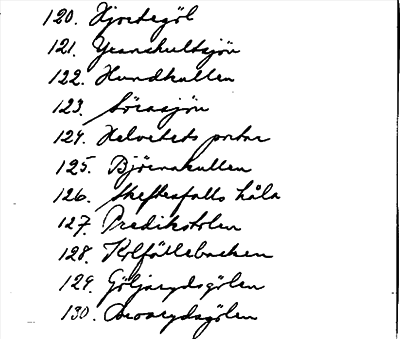 120. Hjortegöl
121. Yranskultsjön
122. Hundkullen
123. Sörasjön
124. Helvetets portar
125. Björnakullen
126. Skeftesfalls håla
127. Predikstolen
128. Kolfällebacken
129. Göljarydsgölen
130.